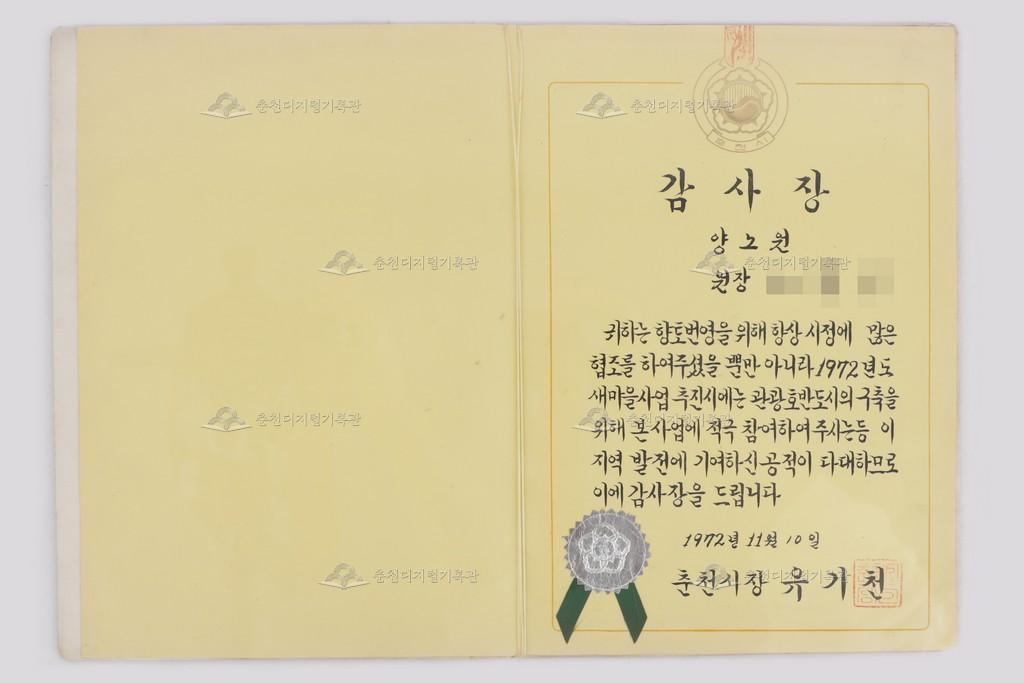 춘천시
감사장
양노원
원장
귀하는 향토번영을 위해 항상 시정에 많은
협조를 하여주셨을 뿐만 아니라 1972년도
새마을사업 추진시에는 관광호반도시의 구축을
위해 본 사업에 적극 참여하여 주시는등 이
지역 발전에 기여하신 공적이 다대하므로
이에 감사장을 드립니다
1972년 11월 10일
춘천시장 유기천
춘천디지털기록관
춘천디지털기록관
춘천디지털기록관
춘천디지털기록관
춘천디지털기록관
춘천디지털기록관
춘천디지털기록관
춘천디지털기록관